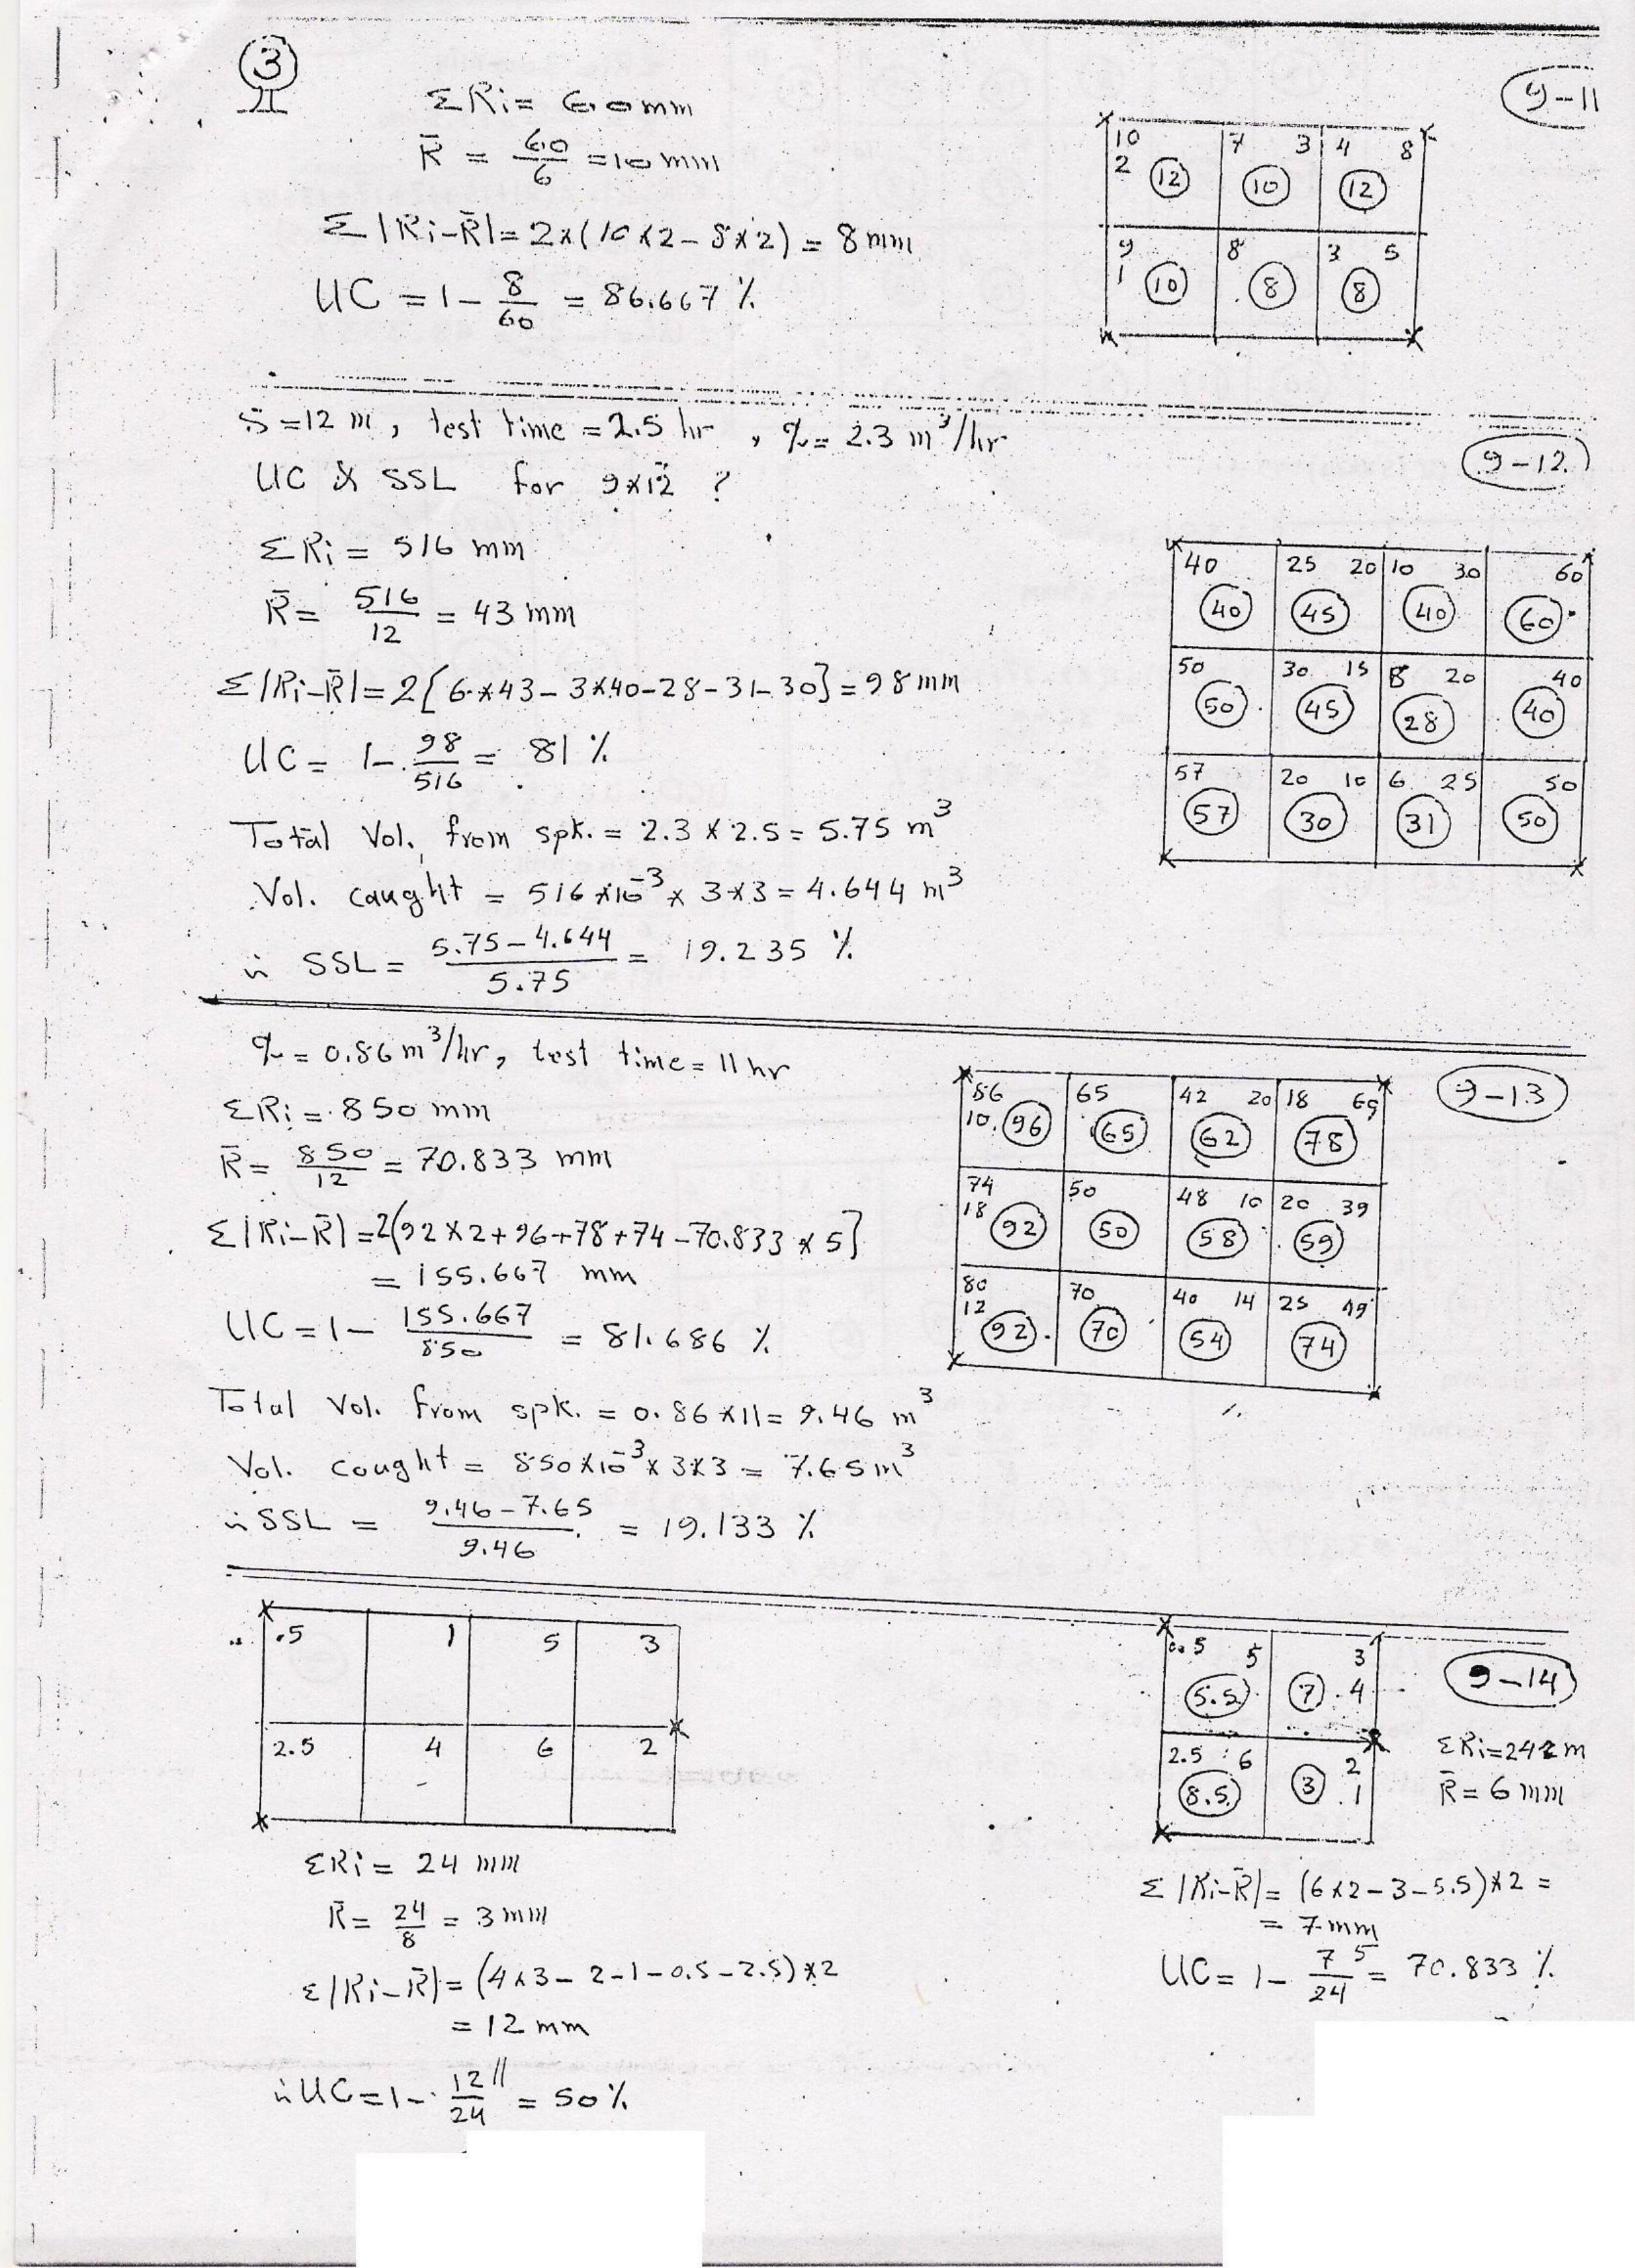 3
9-11
ΣRi = 60mm
R̄ = 60/6 = 10 mm
Σ|Ri-R̄| = 2×(10×2-8×2) = 8 mm
UC = 1 - 8/60 = 86.667 %
10 7 3 4 8
2 12 10 12
9 8 3 5
1 10 8 8
S = 12 m, test time = 2.5 hr, q = 2.3 m³/hr
9-12
UC & SSL for 9×12 ?
ΣRi = 516 mm
R̄ = 516/12 = 43 mm
Σ|Ri-R̄| = 2[6×43-3×40-28-31-30] = 98 mm
UC = 1 - 98/516 = 81 %
Total Vol. from spk. = 2.3 × 2.5 = 5.75 m³
Vol. caught = 516×10⁻³ × 3×3 = 4.644 m³
∴ SSL = (5.75-4.644)/5.75 = 19.235 %
40 25 20 10 30 60
40 45 40 60
50 30 15 8 20 40
50 45 28 40
57 20 10 6 25 50
57 30 31 50
q = 0.86 m³/hr, test time = 11 hr
9-13
ΣRi = 850 mm
R̄ = 850/12 = 70.833 mm
Σ|Ri-R̄| = 2[92×2+96+78+74-70.833×5]
= 155.667 mm
UC = 1 - 155.667/850 = 81.686 %
Total Vol. from spk. = 0.86×11 = 9.46 m³
Vol. cought = 850×10⁻³ × 3×3 = 7.65 m³
∴ SSL = (9.46-7.65)/9.46 = 19.133 %
86 65 42 20 18 69
10 96 65 62 78
74 50 48 10 20 39
18 92 50 58 59
80 70 40 14 25 49
12 92 70 54 74
.5 1 5 3
2.5 4 6 2
ΣRi = 24 mm
R̄ = 24/8 = 3 mm
Σ|Ri-R̄| = (4×3-2-1-0.5-2.5)×2
= 12 mm
∴ UC = 1 - 12/24 = 50 %
9-14
0.5 5 3
5.5 7 4
2.5 6 2
8.5 3 1
R̄ = 6 mm
Σ|Ri-R̄| = (6×2-3-5.5)×2 =
= 7 mm
UC = 1 - 7/24 = 70.833 %